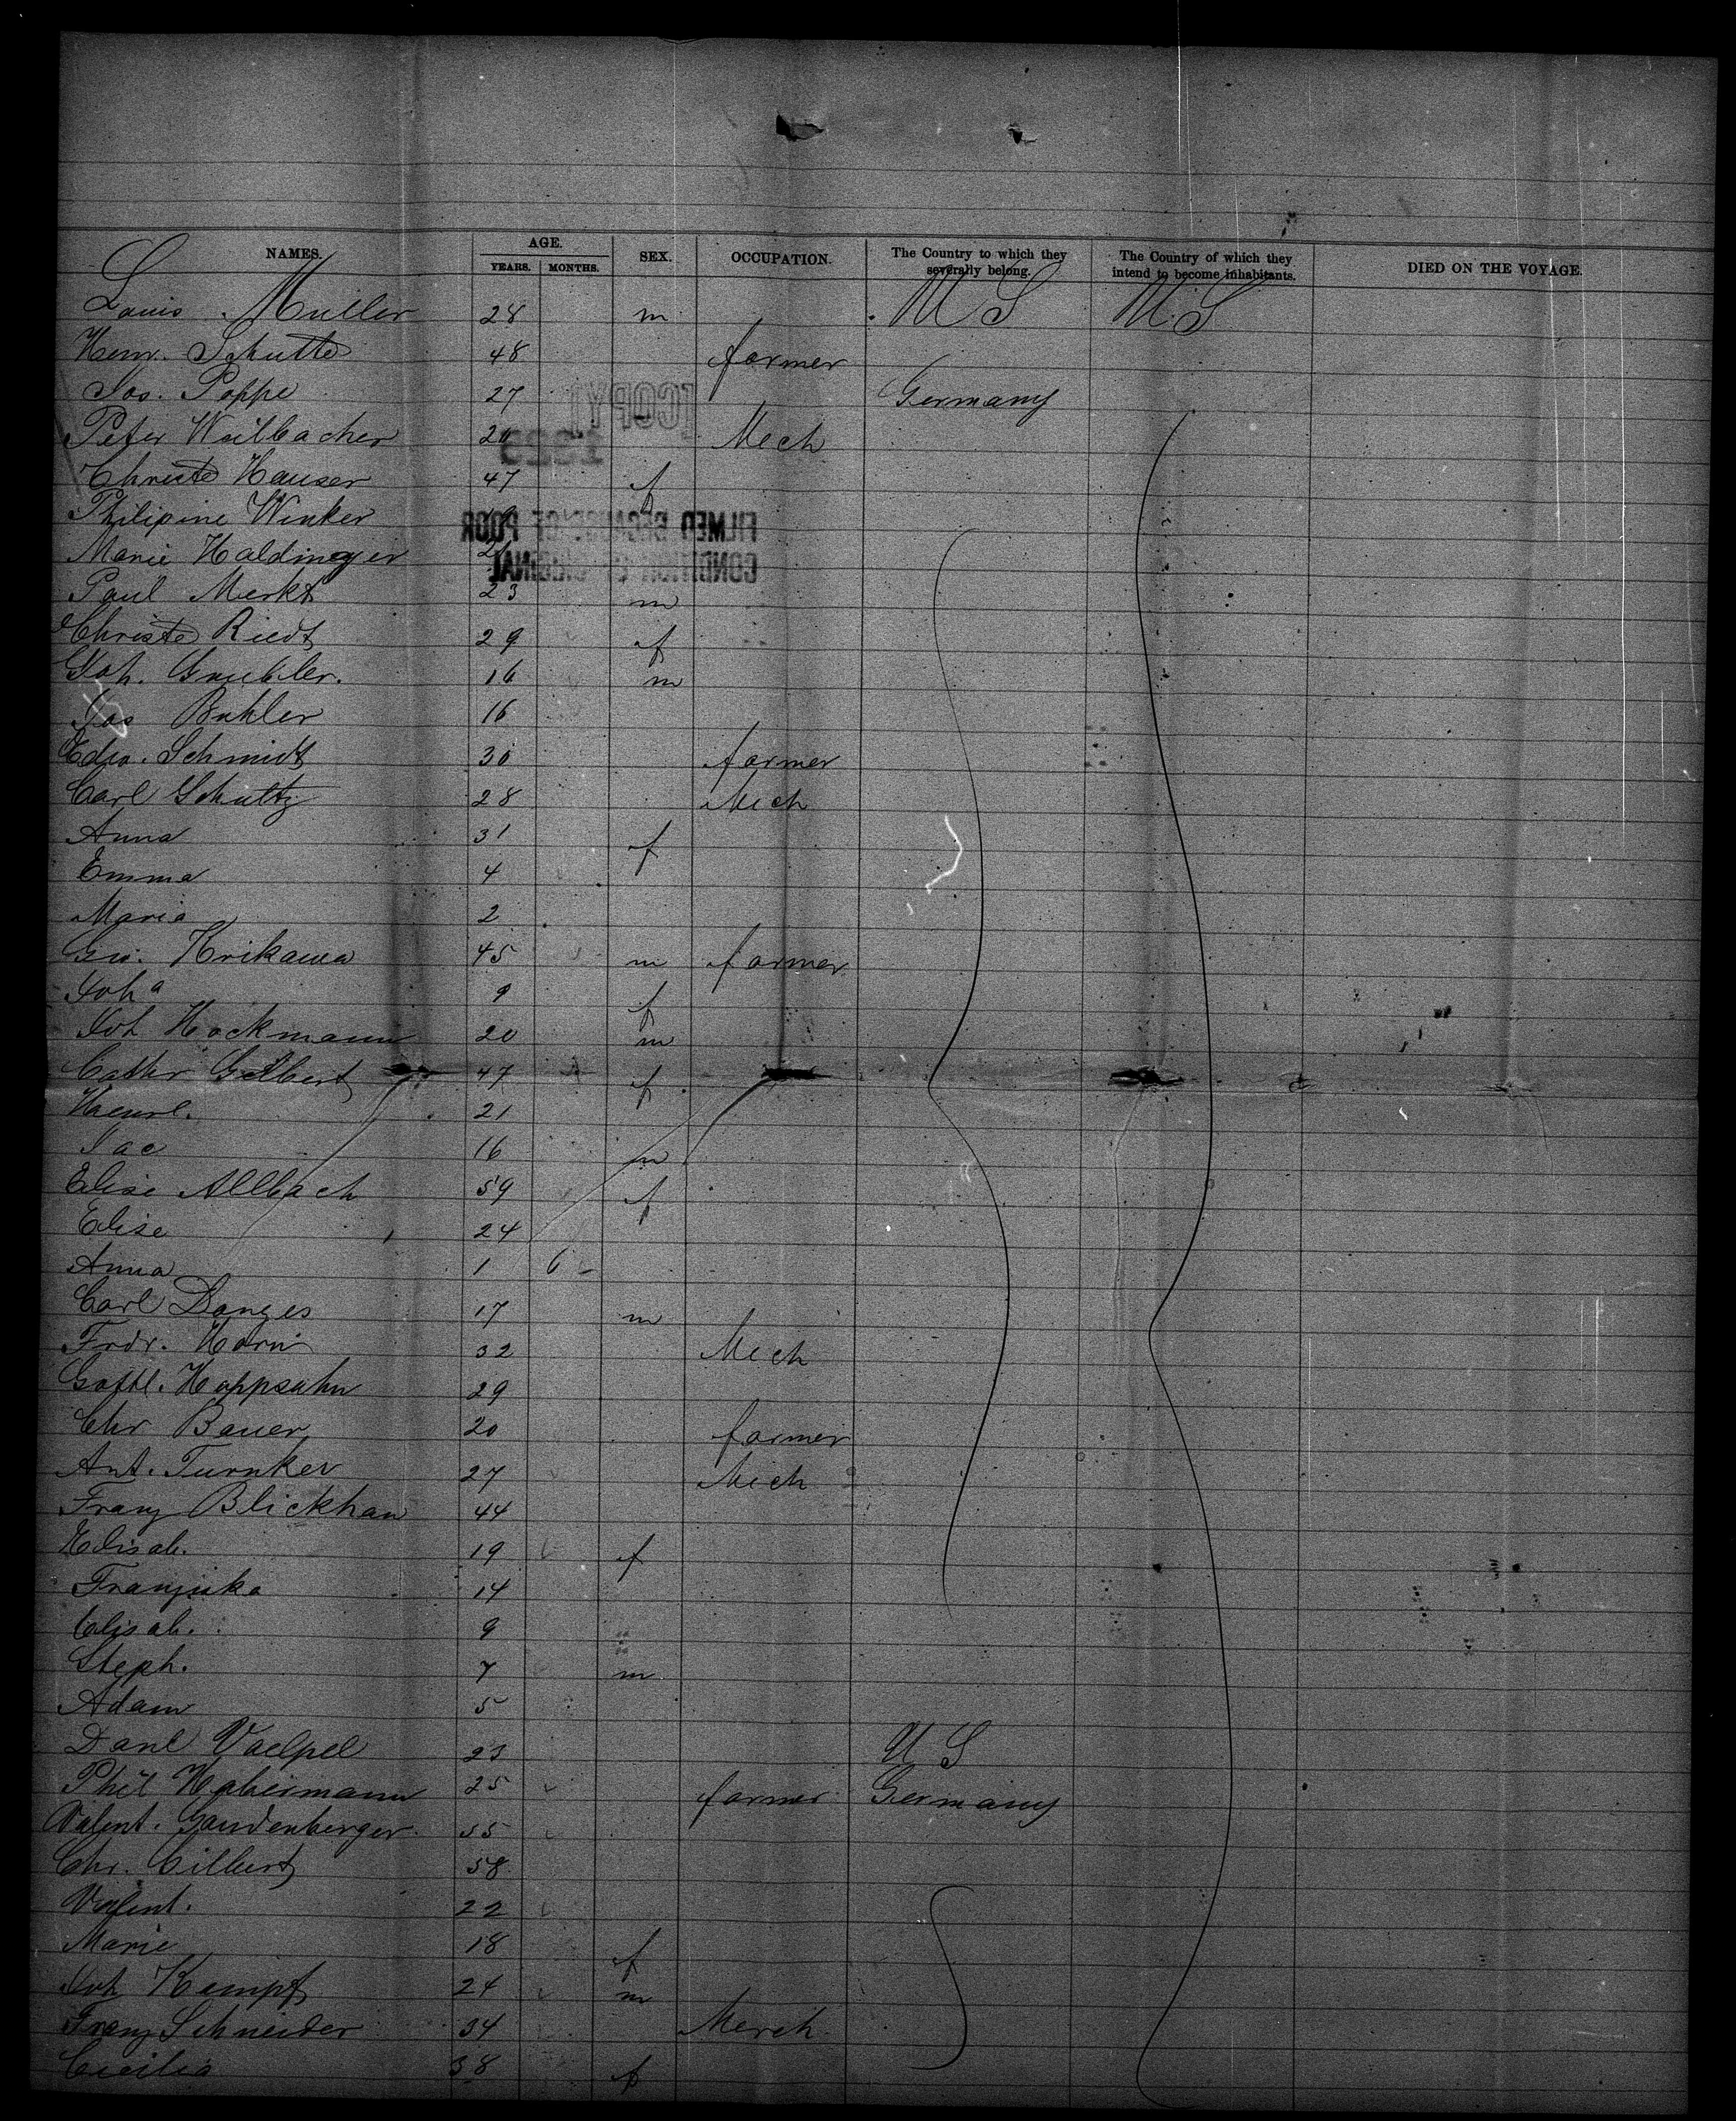 NAMES. AGE. SEX. OCCUPATION. The Country to which they severally belong. The Country of which they intend to become inhabitants. DIED ON THE VOYAGE.
YEARS. MONTHS.
Louis Muller 28 m U S U. S
Henr. Schutte 48 farmer
Jos. Poppe 27 Germany
[COPY]
Peter Weilbacher 20 Mech
Christe Hauser 47 f
Philipine Winker
FILMED BECAUSE OF POOR
Marie Haldinger 21
CONDITION OF ORIGINAL
Paul Merkt 23 m
Christe Riedt 29 f
Joh. Grubler. 16 m
Jos Buhler 16
Edw. Schmidt 30 farmer
Carl Schultz 28 Mech
Anna 31 f
Emma 4
Maria 2
Geo. Krikawa 45 m farmer
Joha 9 f
Joh Hockmann 20 m
Cathr Gilbert 47 f
Henrl. 21
Jac 16 m
Elise Allbach 59 f
Elise 24
Anna 1 6
Carl Danges 17 m
Frdr. Horn 32 Mech
Gottl. Hoppsahn 29
Chr Bauer 20 farmer
Ant. Turnker 27 Mech
Franz Blickhan 44
Elisab. 19 f
Franziska 14
Elisab. 9
Steph. 7 m
Adam 5
Danl Vaelpel 23 U S
Phil Habermann 25 farmer Germany
Valent. Gandenberger 55
Chr. Cilbert 58
Valent. 22
Marie 18 f
Joh Kempf 24 m
Franz Schneider 34 Merch
Cecilia 38 f